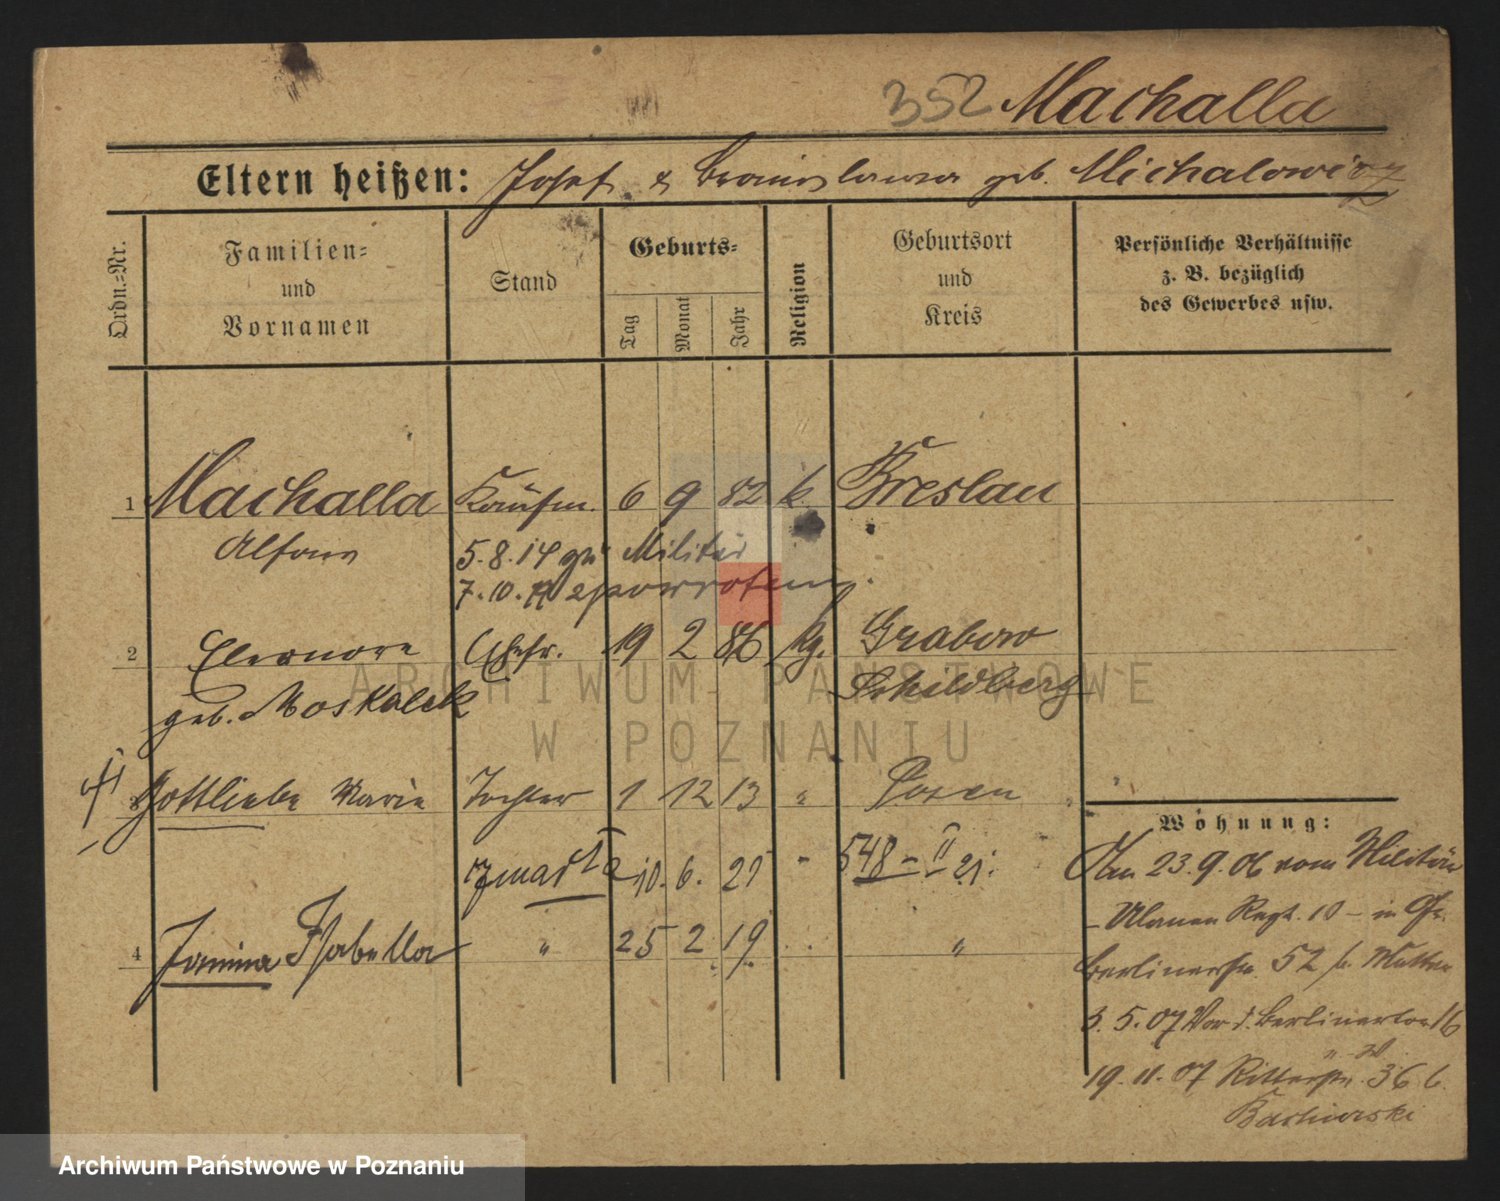 352 Machalla
Eltern heißen: Josef & Bronislawa geb. Michalowicz
Ordn.-Nr.
Familien-
und
Vornamen
Stand
Geburts-
Tag
Monat
Jahr
Religion
Geburtsort
und
Kreis
Persönliche Verhältnisse
z. B. bezüglich
des Gewerbes usw.
1 Machalla Kaufm. 6 9 82 k. Breslau
Alfons 5.8.14 zu Militär
7.10.
2 Eleonore Ehefr. 19 2 86 Grabow
geb. Moskalek Schildberg
3 Gottliebe Marie Tochter 1 12 13 " Posen
zmarła 10. 6. 21 " 548 - II 21.
4 Janina Isabella " 25 2 19. "
Wohnung:
Am 23.9.06 vom Militär
- Ulanen Regt. 10 - in
Berlinerstr. 52 b. Mutter
3.5.07 Vor d. Berlinertor 16
19.11.07 Ritterstr. 36 b.
ARCHIWUM PAŃSTWOWE
W POZNANIU
Archiwum Państwowe w Poznaniu